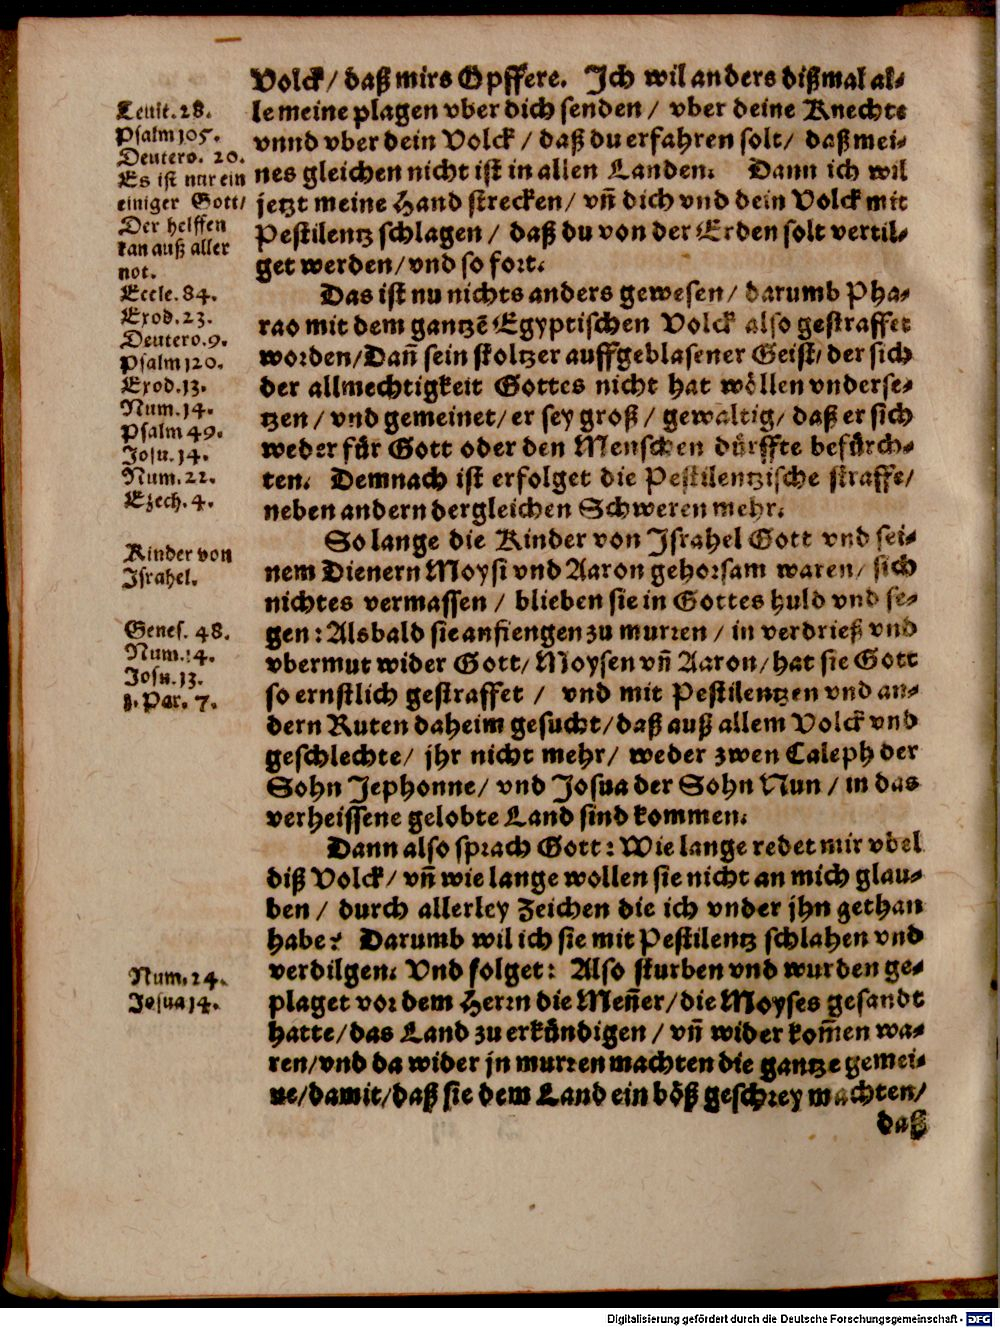 Volck/ daß mirs Opffere. Ich wil anders dißmal al⸗
le meine plagen vber dich senden/ vber deine Knechte
vnnd vber dein Volck/ daß du erfahren solt/ daß mei⸗
nes gleichen nicht ist in allen Landen. Dann ich wil
jetzt meine Hand strecken/ vñ dich vnd dein Volck mit
Pestilentz schlagen/ daß du von der Erden solt vertil⸗
get werden/ vnd so fort.
Leuit. 28.
Psalm 105.
Deutero. 20.
Es ist nur ein
einiger Gott/
Der helffen
kan auß aller
not.
Das ist nu nichts anders gewesen/ darumb Pha⸗
rao mit dem gantzē Egyptischen Volck also gestraffet
worden/ Dañ sein stoltzer auffgeblasener Geist/ der sich
der allmechtigkeit Gottes nicht hat wöllen vnderse⸗
tzen/ vnd gemeinet/ er sey groß/ gewaltig/ daß er sich
weder für Gott oder den Menschen dürffte befürch⸗
ten. Demnach ist erfolget die Pestilentzische straffe/
neben andern dergleichen Schweren mehr.
Eccle. 84.
Exod. 23.
Deutero. 9.
Psalm 120.
Exod. 13.
Num. 14.
Psalm 49.
Josu. 14.
Num. 22.
Ezech. 4.
So lange die Kinder von Israhel Gott vnd sei⸗
nem Dienern Moysi vnd Aaron gehorsam waren/ sich
nichtes vermassen/ blieben sie in Gottes huld vnd se⸗
gen: Alsbald sie anfiengen zu murren/ in verdrieß vnd
vbermut wider Gott/ Moysen vñ Aaron/ hat sie Gott
so ernstlich gestraffet/ vnd mit Pestilentzen vnd an⸗
dern Ruten daheim gesucht/ daß auß allem Volck vnd
geschlechte/ jhr nicht mehr/ weder zwen Caleph der
Sohn Jephonne/ vnd Josua der Sohn Nun/ in das
verheissene gelobte Land sind kommen.
Kinder von
Israhel.
Genes. 48.
Num. 14.
Josu. 13.
1. Par. 7.
Dann also sprach Gott: Wie lange redet mir vbel
diß Volck/ vñ wie lange wollen sie nicht an mich glau⸗
ben/ durch allerley Zeichen die ich vnder jhn gethan
habe? Darumb wil ich sie mit Pestilentz schlahen vnd
verdilgen. Vnd folget: Also sturben vnd wurden ge⸗
plaget vor dem Herrn die Meñer/ die Moyses gesandt
hatte/ das Land zu erkündigen/ vñ wider kom̄en wa⸗
ren/ vnd da wider jn murren machten die gantze gemei⸗
ne/ damit/ daß sie dem Land ein böß geschrey machten/
daß
Num. 24.
Josua 14.
Digitalisierung gefördert durch die Deutsche Forschungsgemeinschaft - DFG